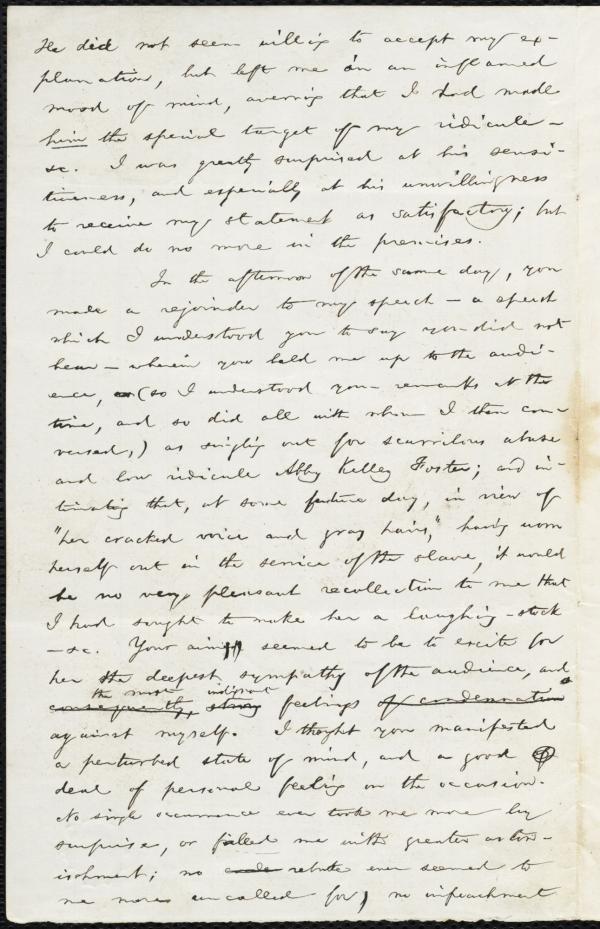 He did not seem willing to accept my ex-
planation, but left me in an inflamed
mood of mind, averring that I had made
him the special target of my ridicule –
&c. I was greatly surprised at his sensi-
tiveness, and especially at his unwillingness
to receive my statement as satisfactory; but
I could do no more in the premises.
In the afternoon of the same day, you
made a rejoinder to my speech – a speech
which I understood you to say you did not
hear – wherein you held me up to the audi-
ence, (so I understood your remarks at the
time, and so did all with whom I then con-
versed,) as singling out for scurrilous abuse
and low ridicule Abby Kelley Foster; and in-
timating that, at some future day, in view of
"her cracked voice and gray hairs," having worn
herself out in the service of the slave, it would
be no very pleasant recollection to me that
I had sought to make her a laughing-stock
– &c. Your aim seemed to be to excite for
her the deepest sympathy of the audience, and
the most indignant
consequently, strong feelings of condemnation
against myself. I thought you manifested
a perturbed state of mind, and a good
deal of personal feeling on the occasion.
No single occurrence ever took me more by
surprise, or filled me with greater aston-
ishment; no rebuke ever seemed to
me more uncalled for, no impeachment